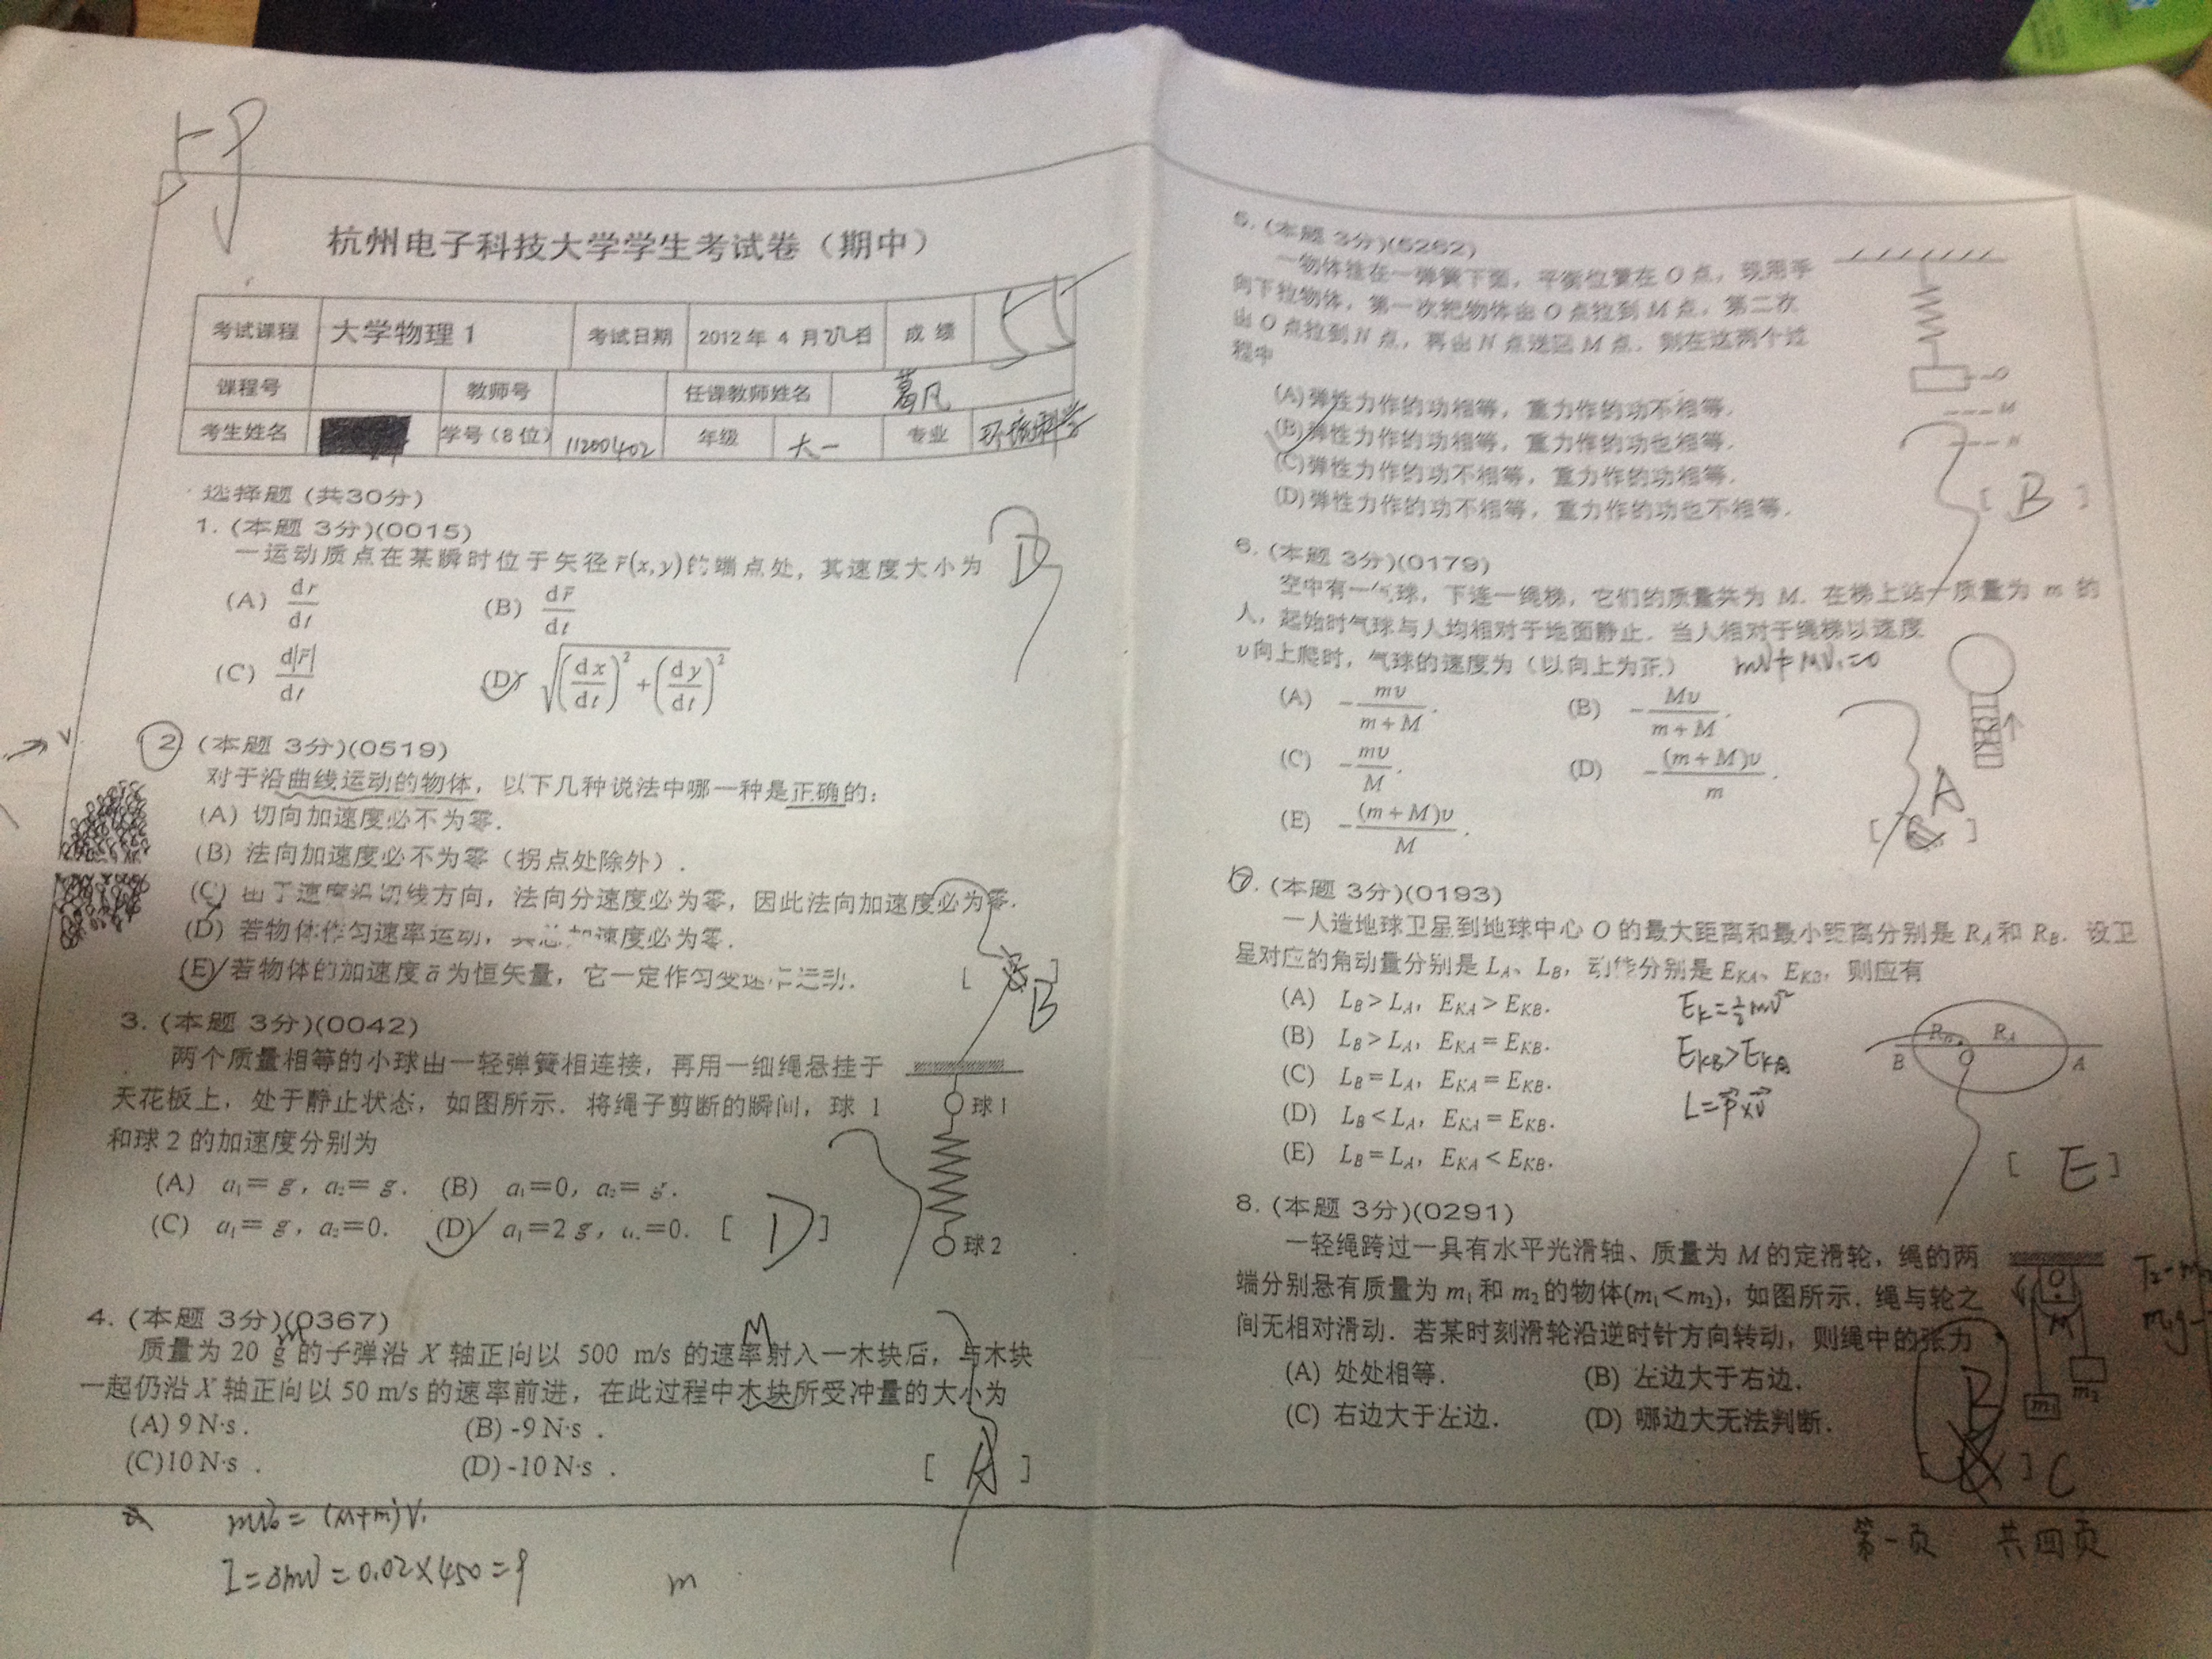 杭州电子科技大学学生考试卷（期中）
考试课程 大学物理 1 考试日期 2012年 4 月 日 成 绩
课程号 教师号 任课教师姓名 葛凡
考生姓名 学号（8 位） 11200402 年级 大一 专业 环境科学
选择题 (共30分)
1. (本题 3分)(0015)
一运动质点在某瞬时位于矢径 r̄(x, y) 的端点处，其速度大小为
D
(A) dr/dt (B) dr̄/dt
(C) d|r̄|/dt (D) √((dx/dt)² + (dy/dt)²)
2 (本题 3分)(0519)
对于沿曲线运动的物体，以下几种说法中哪一种是正确的：
(A) 切向加速度必不为零．
(B) 法向加速度必不为零（拐点处除外）．
(C) 由于速度沿切线方向，法向分速度必为零，因此法向加速度必为零．
(D) 若物体作匀速率运动，其总加速度必为零．
(E) 若物体的加速度 ā 为恒矢量，它一定作匀变速率运动． [ ]
B
3. (本题 3分)(0042)
两个质量相等的小球由一轻弹簧相连接，再用一细绳悬挂于
天花板上，处于静止状态，如图所示．将绳子剪断的瞬间，球 1
和球 2 的加速度分别为
球 1
球 2
(A) a₁= g，a₂= g． (B) a₁=0，a₂= g．
(C) a₁= g，a₂=0． (D) a₁=2 g，a₂=0． [ D ]
4. (本题 3分)(0367)
m M
质量为 20 g 的子弹沿 X 轴正向以 500 m/s 的速率射入一木块后，与木块
一起仍沿 X 轴正向以 50 m/s 的速率前进，在此过程中木块所受冲量的大小为
(A) 9 N·s． (B) -9 N·s ．
(C)10 N·s ． (D) -10 N·s ． [ A ]
mv₀ = (M+m)V₁
I=Δmv = 0.02×450 = 9
m
5. (本题 3分)(5262)
一物体挂在一弹簧下面，平衡位置在 O 点，现用手
向下拉物体，第一次把物体由 O 点拉到 M 点，第二次
由 O 点拉到 N 点，再由 N 点送回 M 点．则在这两个过
程中
O
M
N
(A)弹性力作的功相等，重力作的功不相等．
(B)弹性力作的功相等，重力作的功也相等．
(C)弹性力作的功不相等，重力作的功相等．
(D)弹性力作的功不相等，重力作的功也不相等． [ B ]
6. (本题 3分)(0179)
空中有一气球，下连一绳梯，它们的质量共为 M．在梯上站一质量为 m 的
人，起始时气球与人均相对于地面静止．当人相对于绳梯以速度
v 向上爬时，气球的速度为（以向上为正）
mv+MV₁=0
(A) -mv/(m+M)． (B) -Mv/(m+M)．
(C) -mv/M． (D) -(m+M)v/m．
(E) -(m+M)v/M． [ ]
A
7. (本题 3分)(0193)
一人造地球卫星到地球中心 O 的最大距离和最小距离分别是 R_A 和 R_B．设卫
星对应的角动量分别是 L_A、L_B，动能分别是 E_KA、E_KB，则应有
(A) L_B > L_A，E_KA > E_KB．
(B) L_B > L_A，E_KA = E_KB．
(C) L_B = L_A，E_KA = E_KB．
(D) L_B < L_A，E_KA = E_KB．
(E) L_B = L_A，E_KA < E_KB． [ E ]
E_K = ½mv²
E_KB > E_KA
L = p⃗×v⃗
B R_B O R_A A
8. (本题 3分)(0291)
一轻绳跨过一具有水平光滑轴、质量为 M 的定滑轮，绳的两
端分别悬有质量为 m₁ 和 m₂ 的物体(m₁＜m₂)，如图所示．绳与轮之
间无相对滑动．若某时刻滑轮沿逆时针方向转动，则绳中的张力
(A) 处处相等． (B) 左边大于右边．
(C) 右边大于左边． (D) 哪边大无法判断．
[ ] C
O
M
m₁
m₂
第一页 共四页